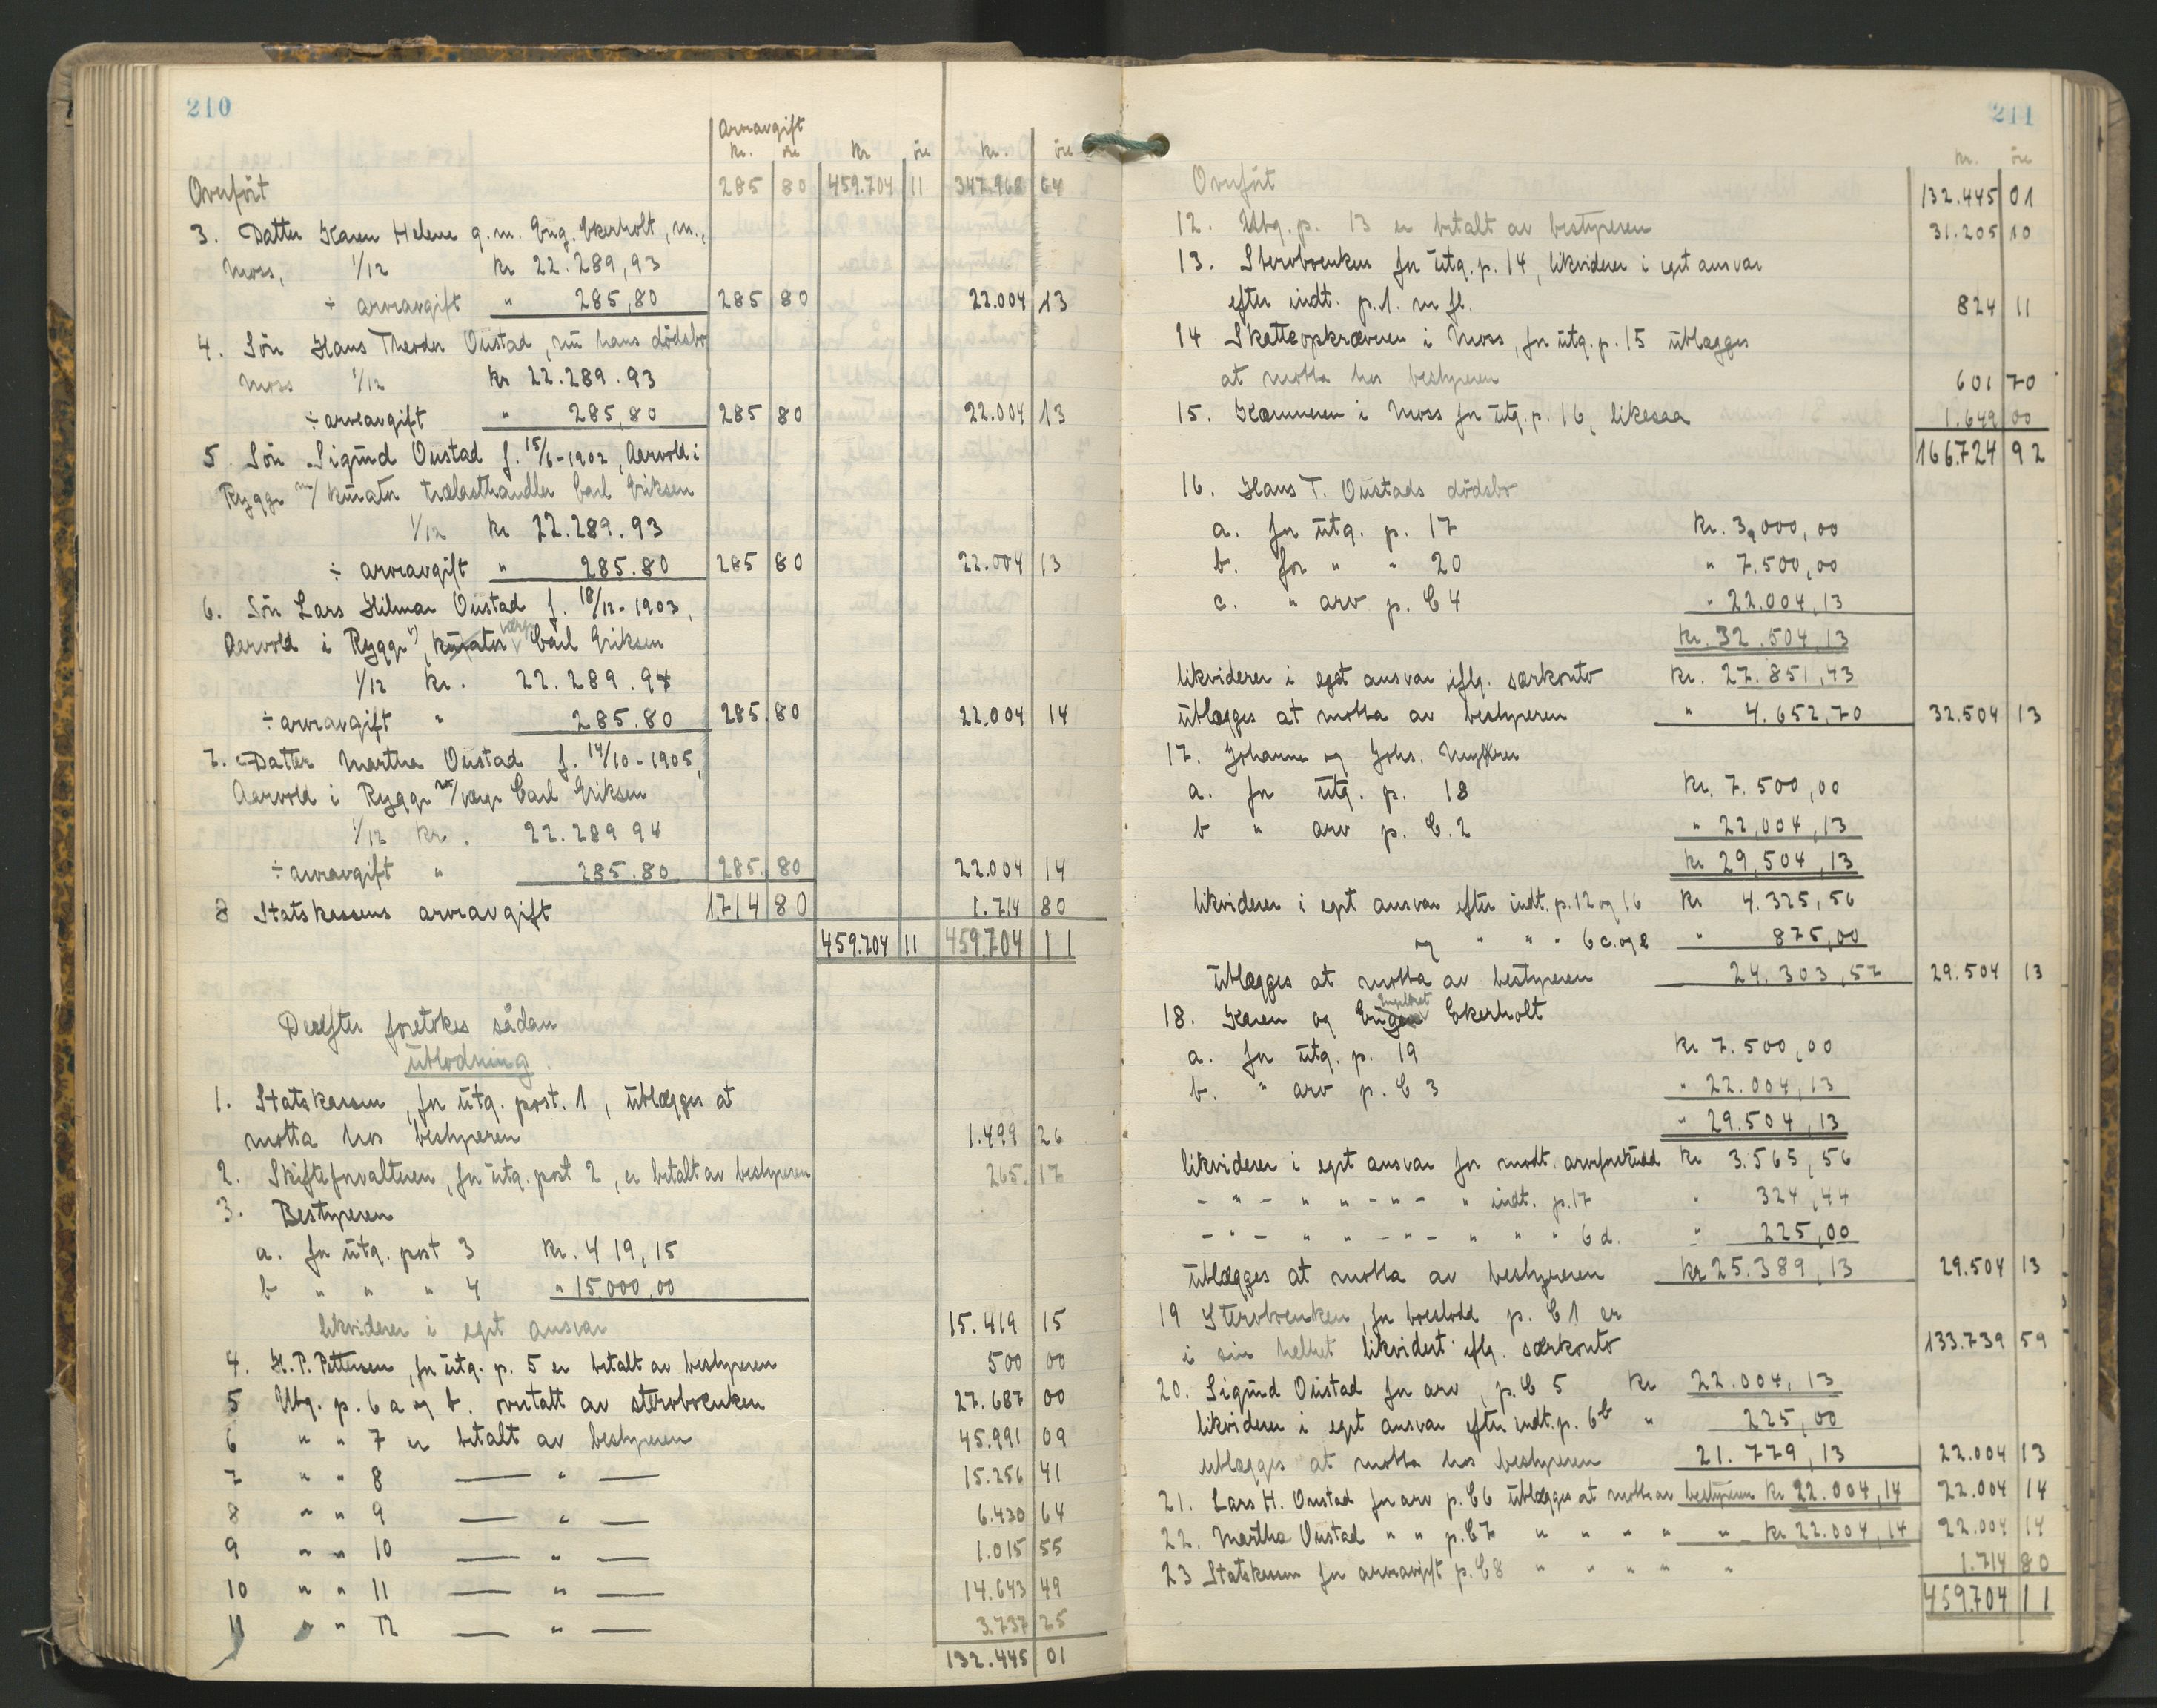 210
Arveavgift
kr. øre kr øre kr. øre
Overført 285 80 459.704 11 347.968 64
3. Datter Karen Helene g.m. Eug. Ekerholt, m.,
Moss, 1/12 kr 22.289,93
÷ arveavgift " 285,80 285 80 22.004 13
4. Søn Hans Theodor Oustad, nu hans dødsbo
Moss 1/12 kr 22.289.93
÷ arveavgift " 285,80 285 80 22.004 13
5. Søn Sigurd Oustad f. 15/6-1902, Aarvold i
Rygge m/ kurator trælasthandler Carl Eriksen
1/12 kr 22.289.93
÷ arveavgift " 285.80 285 80 22.004 13
6. Søn Lars Hilmar Oustad f. 18/12-1903,
Aarvold i Rygge, kurator verge Carl Eriksen
1/12 kr. 22.289.94
÷ arveavgift " 285.80 285.80 22.004 14
7. Datter Martha Oustad f. 14/10-1905,
Aarvold i Rygge m/verge Carl Eriksen
1/12 kr. 22.289 94
÷ arveavgift " 285.80 285.80 22.004 14
8 Statskassens arveavgift 1.714 80 1.714 80
459.704 11 459.704 11
Derefter foretokes sådan
utlodning.
1. Statskassen, for utg. post. 1, utlægges at
motta hos bestyreren 1.499 26
2. Skifteforvalteren, for utg. post 2, er betalt av bestyreren 265. 17
3. Bestyreren
a. for utg. post 3 kr. 419,15
b " " " 4 " 15.000,00
likviderer i eget ansvar 15.419 15
4. H.P. Pettersen, for utg. p. 5 er betalt av bestyreren 500 00
5 Utg. p. 6 a og b. overtatt av stervboenken 27.687 00
6 " " 7 er betalt av bestyreren 45.991 09
7 " " 8 — " — 15.256 41
8 " " 9 — " — 6.430 64
9 " " 10 — " — 1.015 55
10 " " 11 — " — 14.643 49
11 " " 12 — " — 3.737 25
132.445 01
211
kr. øre
Overført 132.445 01
12. Utg. p. 13 er betalt av bestyreren 31.205 10
13. Stervboenken for utg. p. 14, likviderer i eget ansvar
efter indt. p. 1. m fl. 824 11
14 Skatteopkræveren i Moss, for utg. p. 15 utlægges
at motta hos bestyreren 601 70
15. Kæmneren i Moss for utg. p. 16, likesaa 1.649 00
166.724 92
16. Hans T. Oustads dødsbo
a. for utg. p. 17 kr. 3.000,00
b. for " " 20 " 7.500,00
c. " arv p. C 4 " 22.004,13
kr. 32.504,13
likviderer i eget ansvar iflg. særkonto kr. 27.851,43
utlægges at motta av bestyreren " 4.652,70 32.504 13
17. Johanne og Johs.
a. for utg. p. 18 kr. 7.500,00
b " arv p. C. 2 " 22,004,13
kr 29,504,13
likviderer i eget ansvar efter indt. p. 12 og 16 kr 4.325,56
og " " " 6 c. og e " 875,00
utlægges at motta av bestyreren 24.303,57 29.504 13
18. Karen og Ekerholt
a. for utg. p. 19 kr 7.500,00
b. " arv p. C 3 " 22.004,13
" 29.504,13
likviderer i eget ansvar for modt. arveforskudd kr 3.565,56
- " - " " - " - " indt. p. 17 " 324,44
- " - " " - " - " " " 6 d. " 225,00
utlægges at motta av bestyreren kr 25.389,13 29.504 13
19 Stervboenken, for boeslodd p. C 1 er
i sin helhet likvidert iflg. særkonto 133.739 59
20. Sigurd Oustad for arv, p. C 5 kr 22.004,13
likviderer i eget ansvar efter indt. p. 6 b " 225,00
utlægges at motta hos bestyreren 21.779,13 22.004 13
21. Lars H. Oustad for arv p. C6 utlægges at motta av bestyreren kr 22.004,14 22.004 14
22. Martha Oustad " " p. C7 " " " " " kr 22.004,14 22.004 14
23 Statskassen for arveavgift p. C8 " " " " " 1.714 80
459.704 11